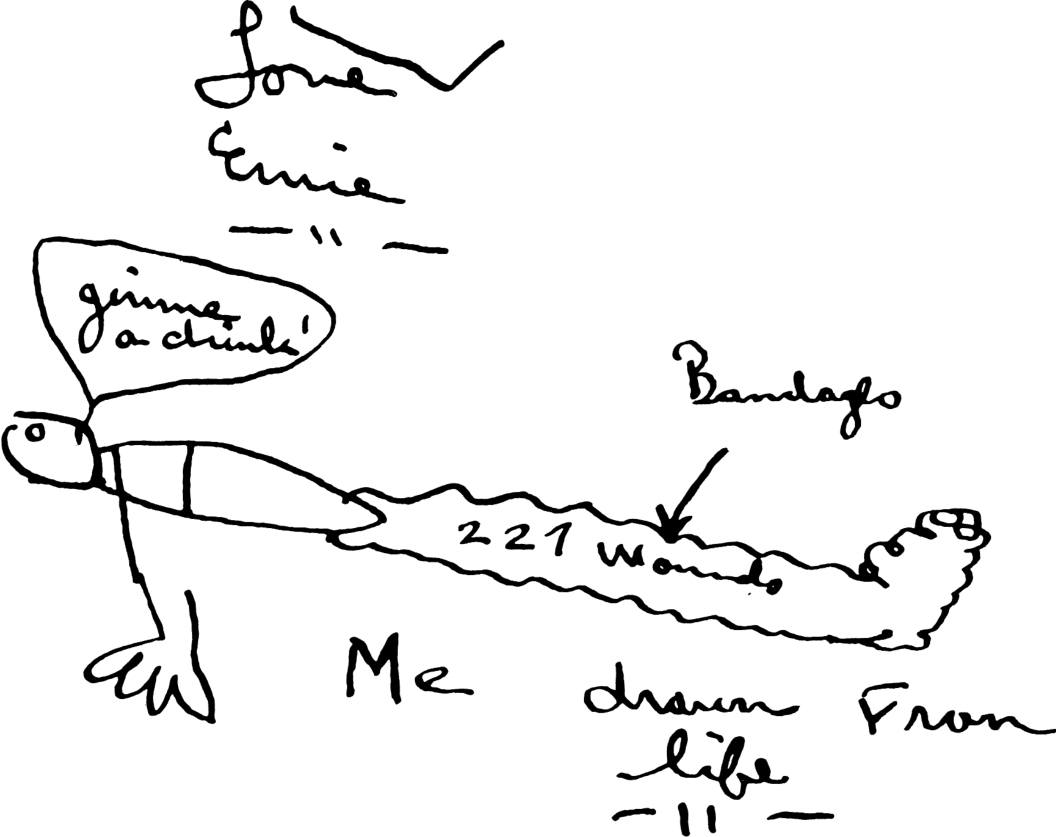 Love
Ernie
gimme
a drink!
Bandages
227 wounds
Me drawn From
life